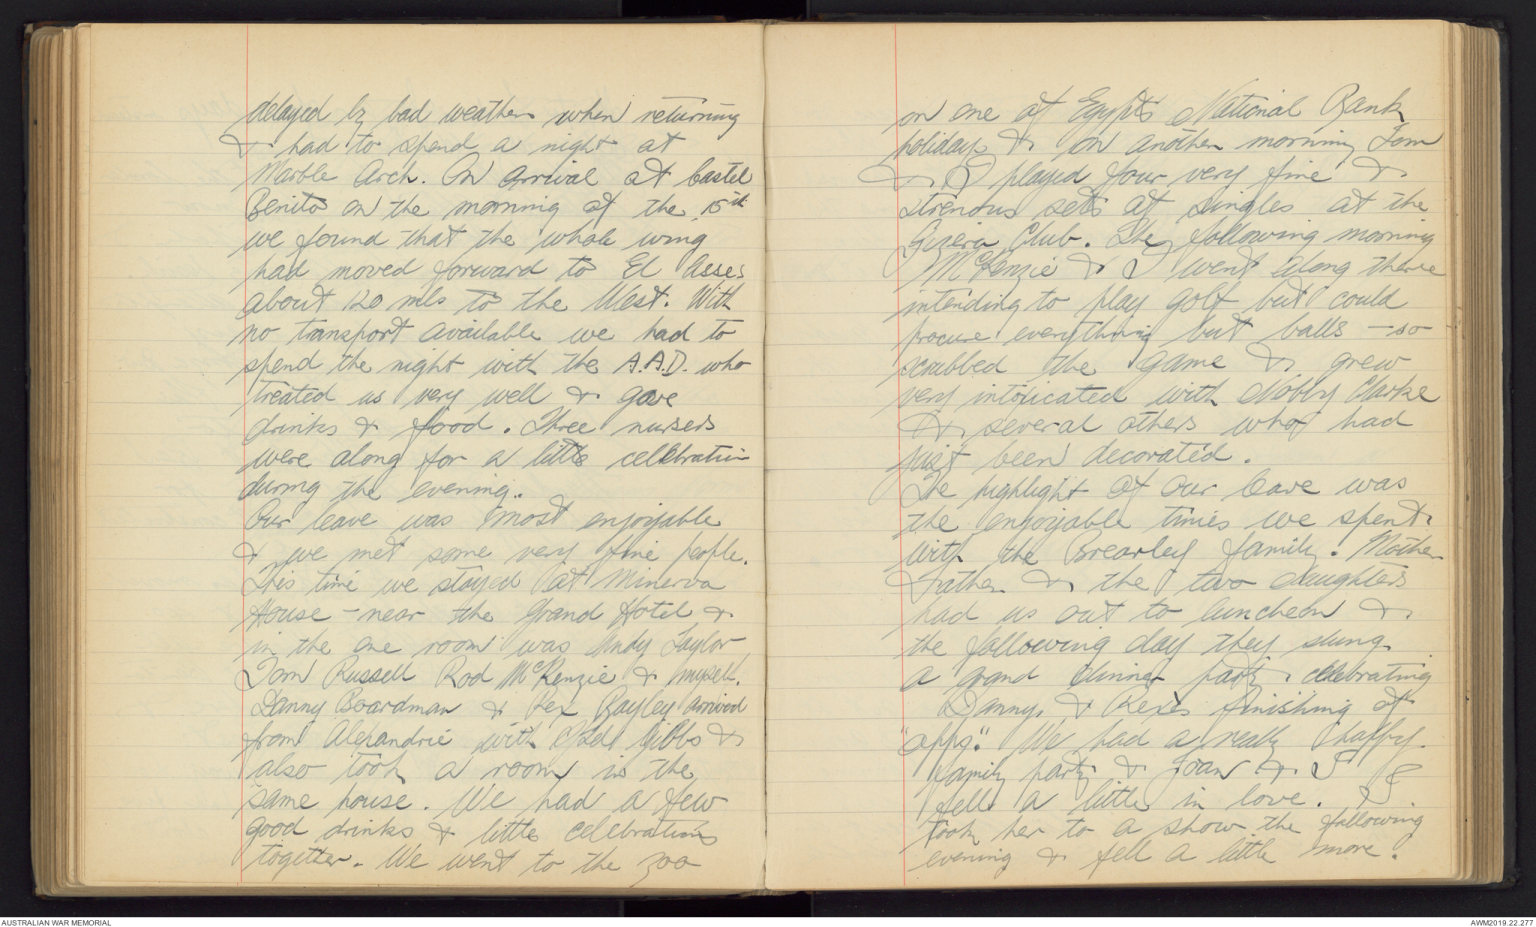 delayed by bad weather when returning
& had to spend a night at
Marble Arch. On arrival at Castel
Benito on the morning of the 15th
we found that the whole wing
had moved forward to El Asses
about 120 mls to the West. With
no transport available we had to
spend the night with the A.A.D. who
treated us very well & gave
drinks & food. Three nurses
were along for a little celebration
during the evening.
Our leave was most enjoyable
& we met some very fine people.
This time we stayed at Minerva
House – near the Grand Hotel &
in the one room was Andy Taylor
Tom Russell Rod McKenzie & myself.
Danny Boardman & Rex Bayley arrived
from Alexandrie with Gibbs &
also took a room in the
same house. We had a few
good drinks & little celebrations
together. We went to the zoo
on one of Egypts National Bank
holidays & on another morning Tom
& I played four very fine &
strenous sets of singles at the
Gizera Club. The following morning
McKenzie & I went along there
intending to play golf but could
procure everything but balls – so
scrubbed the game & grew
very intoxicated with Nobby Clarke
& several others who had
just been decorated.
The highlight of our leave was
the enjoyable times we spent
with the Brearley family. Mother
Father & the two daughters
had us out to luncheon &
the following day they slung
a grand dinner party celebrating
Danny & Rex's finishing of
"opps." We had a really chappy
family party & Joan & I
fell a little in love. I
took her to a show the following
evening & fell a little more.
AUSTRALIAN WAR MEMORIAL
AWM2019.22.277